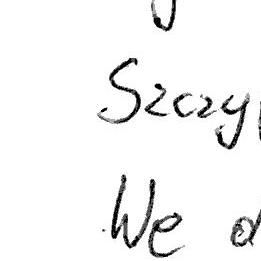 Szczy
We